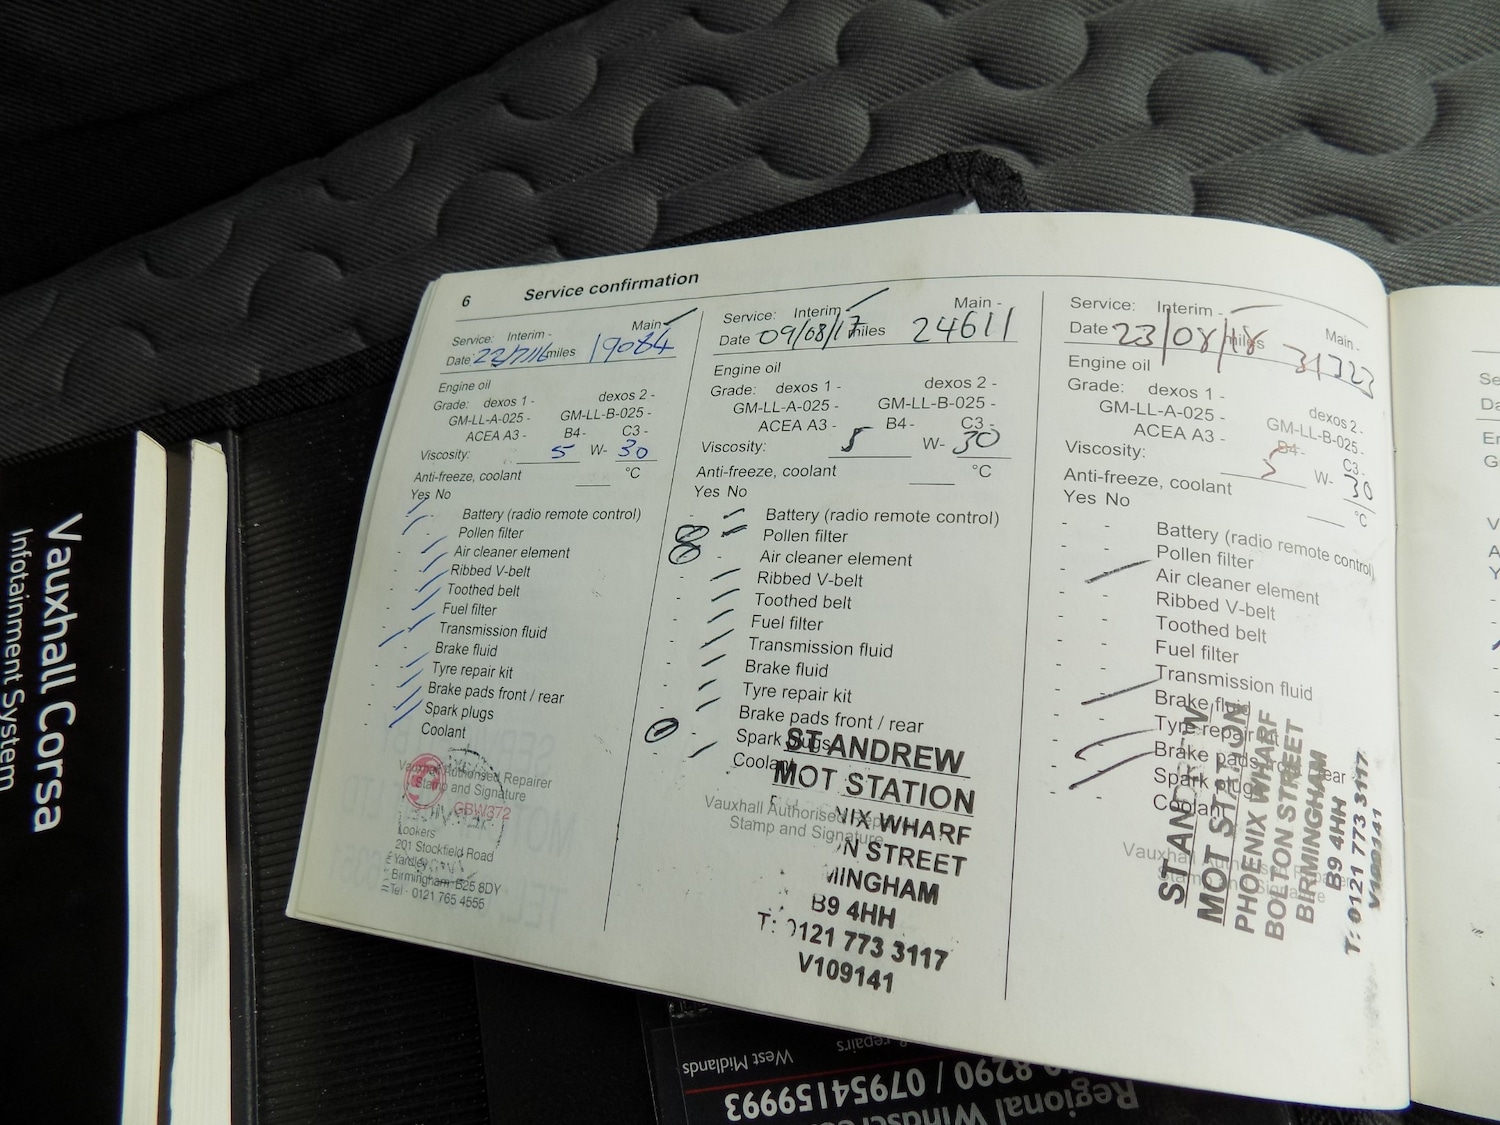 6 Service confirmation
Service: Interim - Main -
Date 22/7/16 miles 19084
Engine oil
Grade: dexos 1 - dexos 2 -
GM-LL-A-025 - GM-LL-B-025 -
ACEA A3 - B4 - C3 -
Viscosity: 5 W- 30
Anti-freeze, coolant °C
Yes No
Battery (radio remote control)
Pollen filter
Air cleaner element
Ribbed V-belt
Toothed belt
Fuel filter
Transmission fluid
Brake fluid
Tyre repair kit
Brake pads front / rear
Spark plugs
Coolant
Vauxhall Authorised Repairer
Stamp and Signature
GBW372
Lookers
201 Stockfield Road
Yardley
Birmingham B25 8DY
Tel · 0121 765 4555
Service: Interim Main -
Date 09/08/17 miles 24611
Engine oil
Grade: dexos 1 - dexos 2 -
GM-LL-A-025 - GM-LL-B-025 -
ACEA A3 - B4 - C3 -
Viscosity: 5 W- 30
Anti-freeze, coolant °C
Yes No
Battery (radio remote control)
Pollen filter
Air cleaner element
Ribbed V-belt
Toothed belt
Fuel filter
Transmission fluid
Brake fluid
Tyre repair kit
Brake pads front / rear
Spark plugs
Coolant
Vauxhall Authorised Repairer
Stamp and Signature
ST ANDREW
MOT STATION
NIX WHARF
N STREET
MINGHAM
B9 4HH
T: 0121 773 3117
V109141
Service: Interim - Main -
Date 23/08/18 miles 31323
Engine oil
Grade: dexos 1 - dexos 2 -
GM-LL-A-025 - GM-LL-B-025 -
ACEA A3 - B4 - C3 -
Viscosity: 5 W- 30
Anti-freeze, coolant °C
Yes No
Battery (radio remote control)
Pollen filter
Air cleaner element
Ribbed V-belt
Toothed belt
Fuel filter
Transmission fluid
Brake fluid
Tyre repair kit
Brake pads front / rear
Spark plugs
Coolant
Vauxhall Authorised Repairer
Stamp and Signature
ST ANDREW
MOT STATION
PHOENIX WHARF
BOLTON STREET
BIRMINGHAM
B9 4HH
T: 0121 773 3117
V109141
Vauxhall Corsa
Infotainment System
Regional
8290 / 07954159993
West Midlands
& repairs